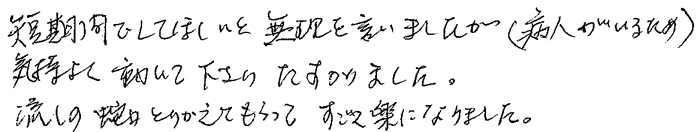 短期間でしてほしいと無理を言いましたが(病人がいるため)
気持よく動いて下さりたすかりました。
流しの蛇口とりかえてもらってすごく楽になりました。